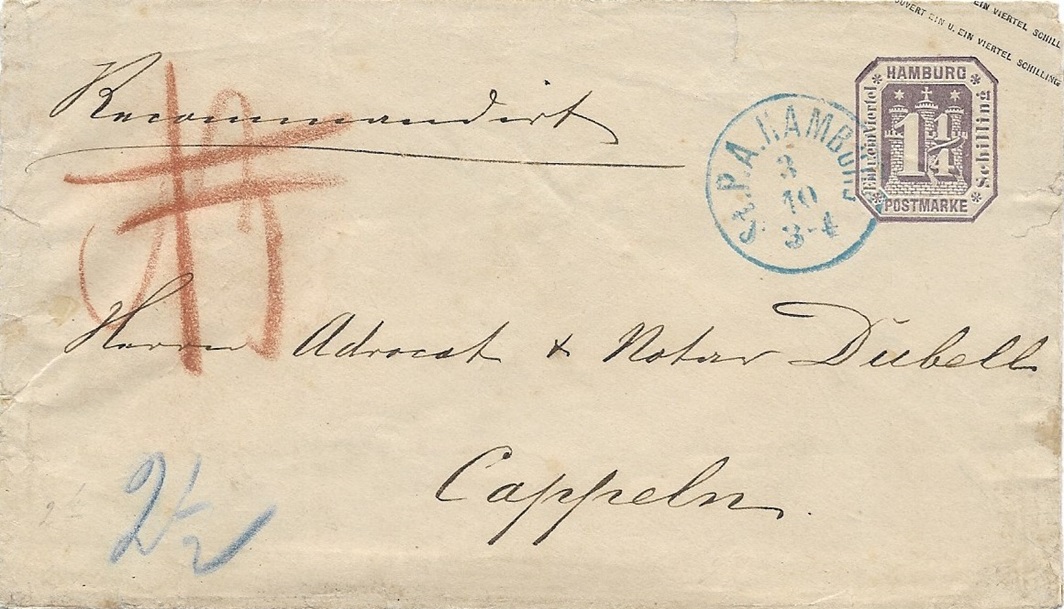 EIN VIERTEL SCHILL
OUVERT EIN U. EIN VIERTEL SCHILLING
HAMBURG
Ein u. ein Viertel
1 1/4
Schilling
POSTMARKE
St. P. A. HAMBURG
3
10
3-4
Recommandirt
Herrn Advocat & Notar Dübell
Cappeln.
2 1/2